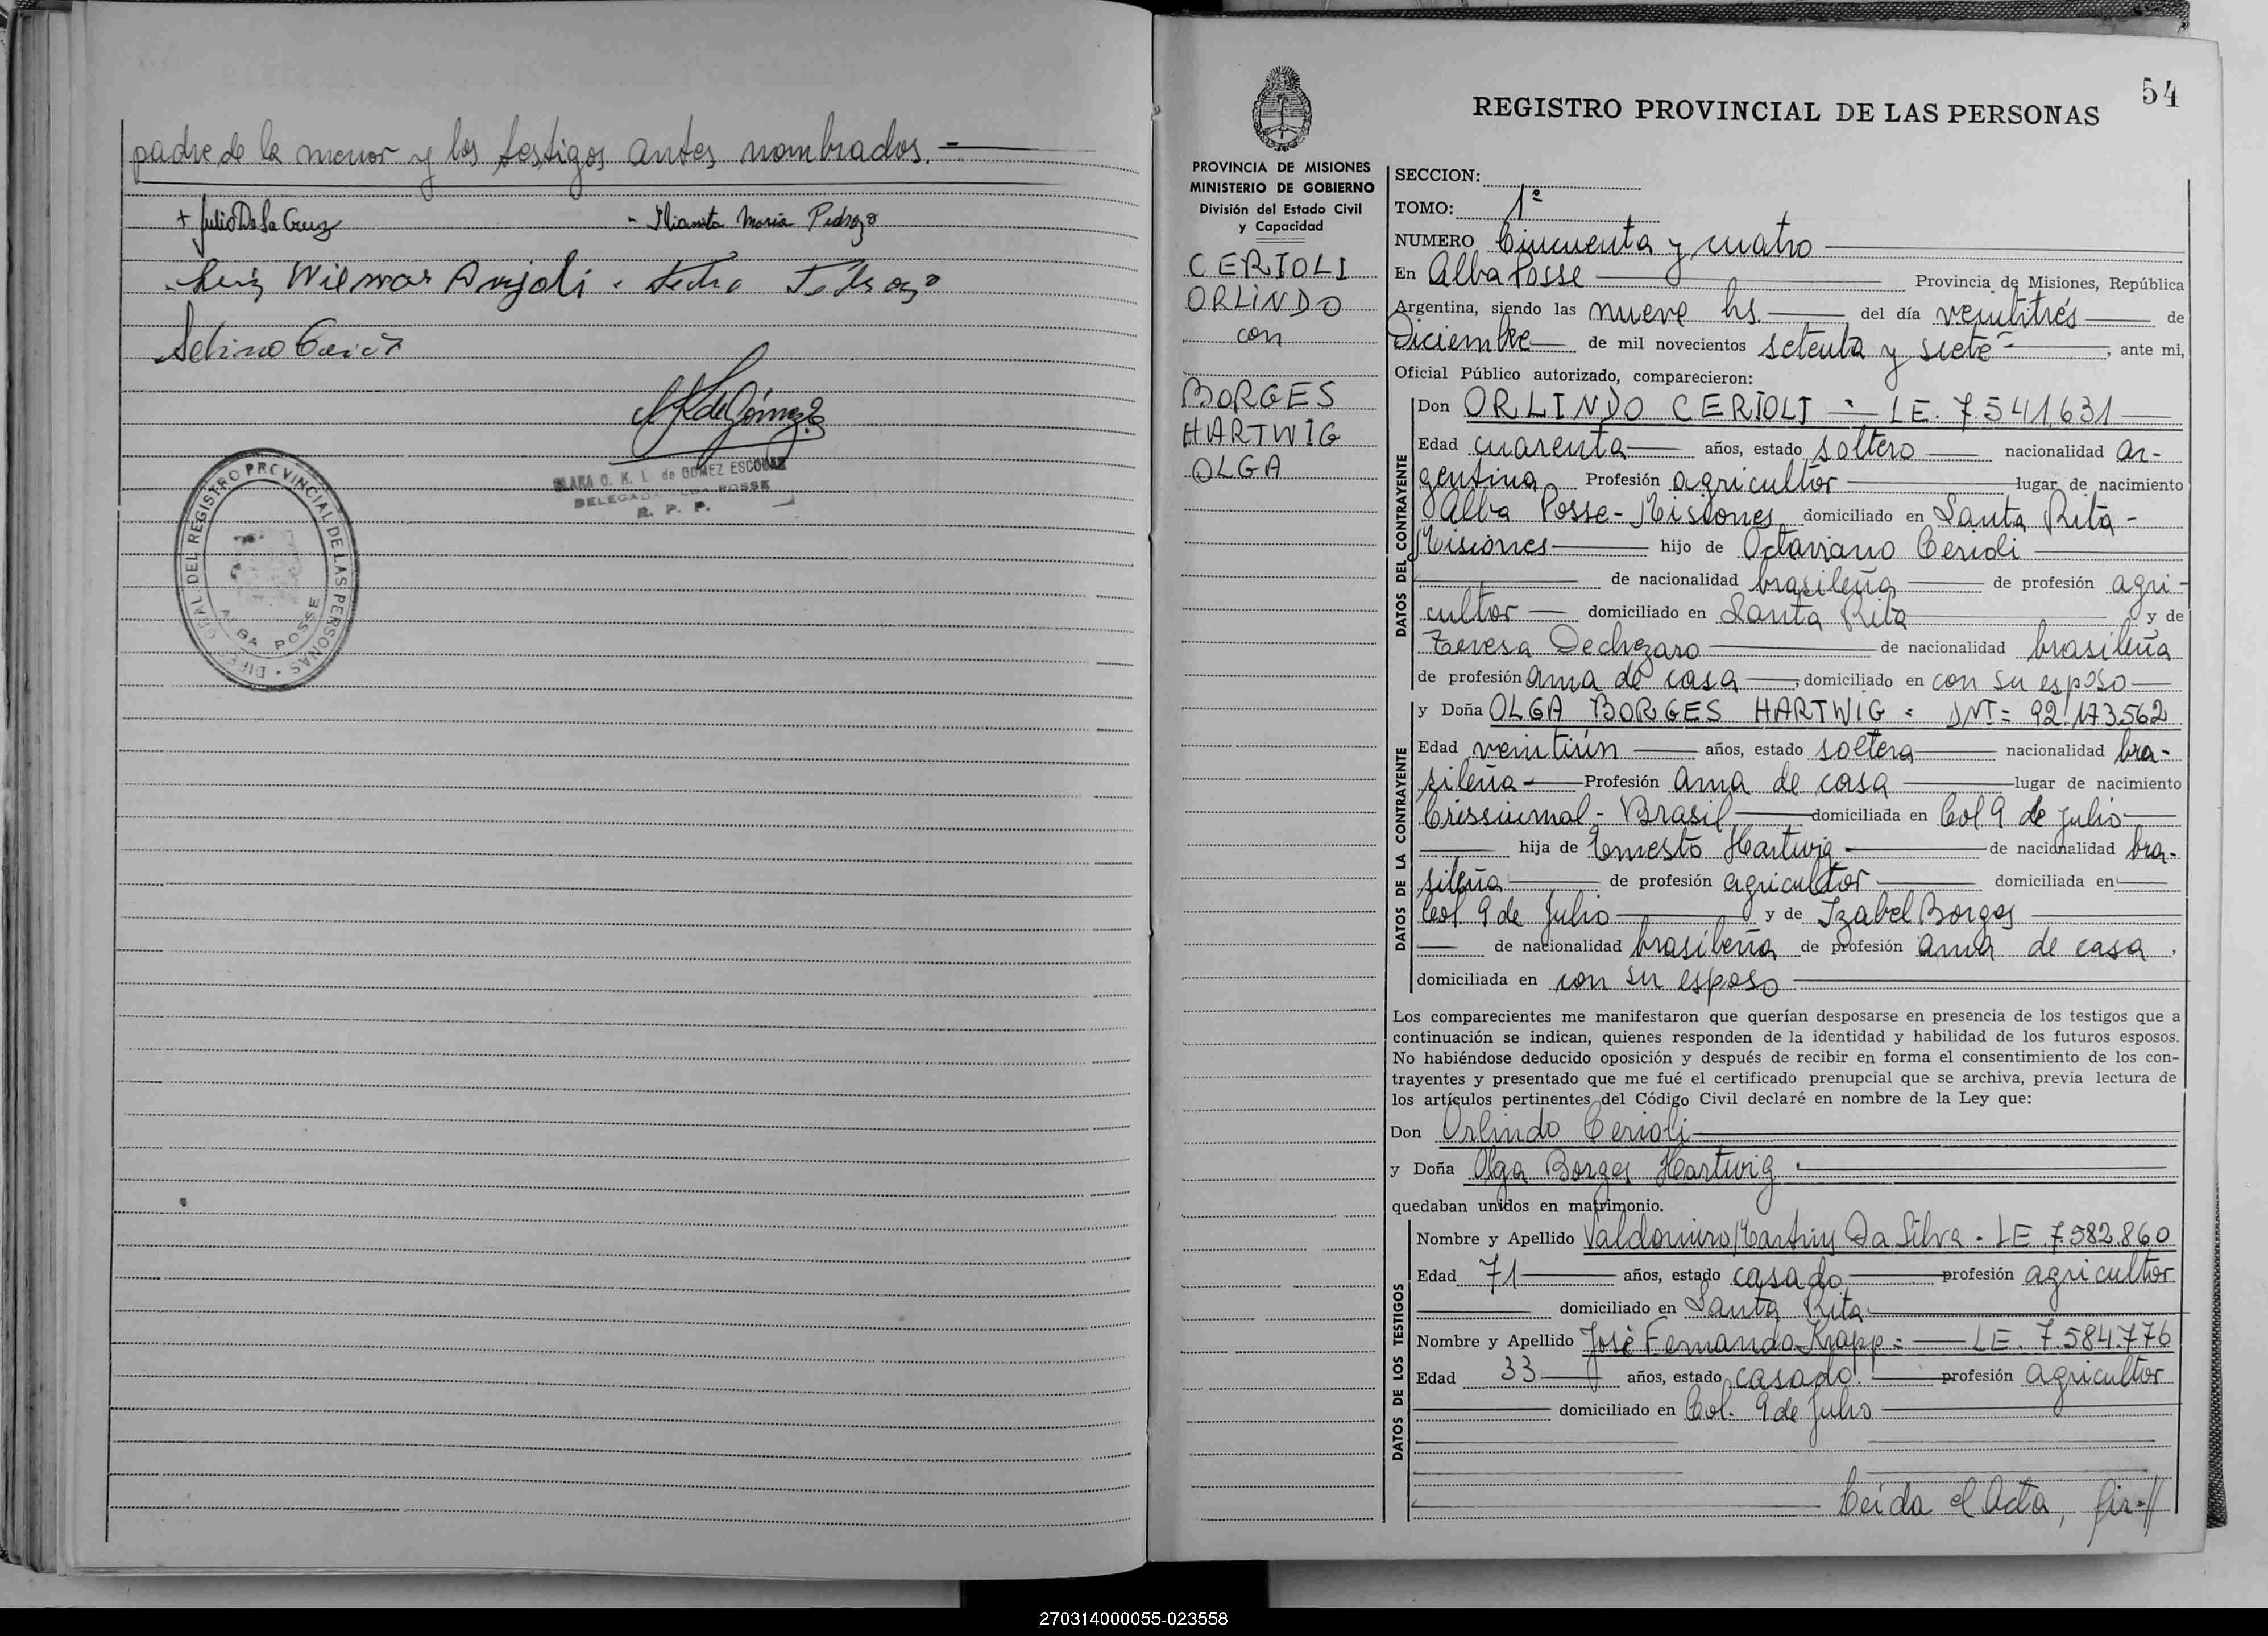 padre de la menor y los testigos antes nombrados.-
+ Julio De La Cruz - Maria Pedrozo
Luis Wilmar Anjoli -
de Gómez
CLARA O. K. L. de GOMEZ ESCOBAR
DELEGADA ALBA POSSE
R. P. P.
GRAL DEL REGISTRO PROVINCIAL DE LAS PERSONAS
ALBA POSSE
54
REGISTRO PROVINCIAL DE LAS PERSONAS
PROVINCIA DE MISIONES
MINISTERIO DE GOBIERNO
División del Estado Civil
y Capacidad
CERIOLI
ORLINDO
con
BORGES
HARTWIG
OLGA
SECCION:
TOMO: 1º
NUMERO Cincuenta y cuatro
En Alba Posse Provincia de Misiones, República
Argentina, siendo las nueve hs. del día veintitrés de
Diciembre de mil novecientos setenta y siete , ante mi,
Oficial Público autorizado, comparecieron:
DATOS DEL CONTRAYENTE
Don ORLINDO CERIOLI - LE. 7.541.631
Edad cuarenta años, estado soltero nacionalidad ar-
gentina Profesión agricultor lugar de nacimiento
Alba Posse - Misiones domiciliado en Santa Rita -
Misiones hijo de Octaviano Cerioli
de nacionalidad brasileña de profesión agri-
cultor domiciliado en Santa Rita y de
Teresa Dechezaro de nacionalidad brasileña
de profesión ama de casa , domiciliado en con su esposo
DATOS DE LA CONTRAYENTE
y Doña OLGA BORGES HARTWIG = DNI= 92.173.562
Edad veintiún años, estado soltera nacionalidad bra-
sileña Profesión ama de casa lugar de nacimiento
Crissiumal - Brasil domiciliada en Col 9 de Julio
hija de Ernesto Hartwig de nacionalidad bra-
sileña de profesión agricultor domiciliada en
Col 9 de Julio y de Izabel Borges
de nacionalidad brasileña de profesión ama de casa ,
domiciliada en con su esposo
Los comparecientes me manifestaron que querían desposarse en presencia de los testigos que a
continuación se indican, quienes responden de la identidad y habilidad de los futuros esposos.
No habiéndose deducido oposición y después de recibir en forma el consentimiento de los con-
trayentes y presentado que me fué el certificado prenupcial que se archiva, previa lectura de
los artículos pertinentes del Código Civil declaré en nombre de la Ley que:
Don Orlindo Cerioli
y Doña Olga Borges Hartwig
quedaban unidos en matrimonio.
DATOS DE LOS TESTIGOS
Nombre y Apellido Valdomiro Martins Da Silva - LE 7.582.860
Edad 71 años, estado casado profesión agricultor
domiciliado en Santa Rita
Nombre y Apellido José Fernando Krapp = LE. 7.584.776
Edad 33 años, estado casado profesión agricultor
domiciliado en Col. 9 de Julio
Leida el Acta, fir-//
270314000055-023558